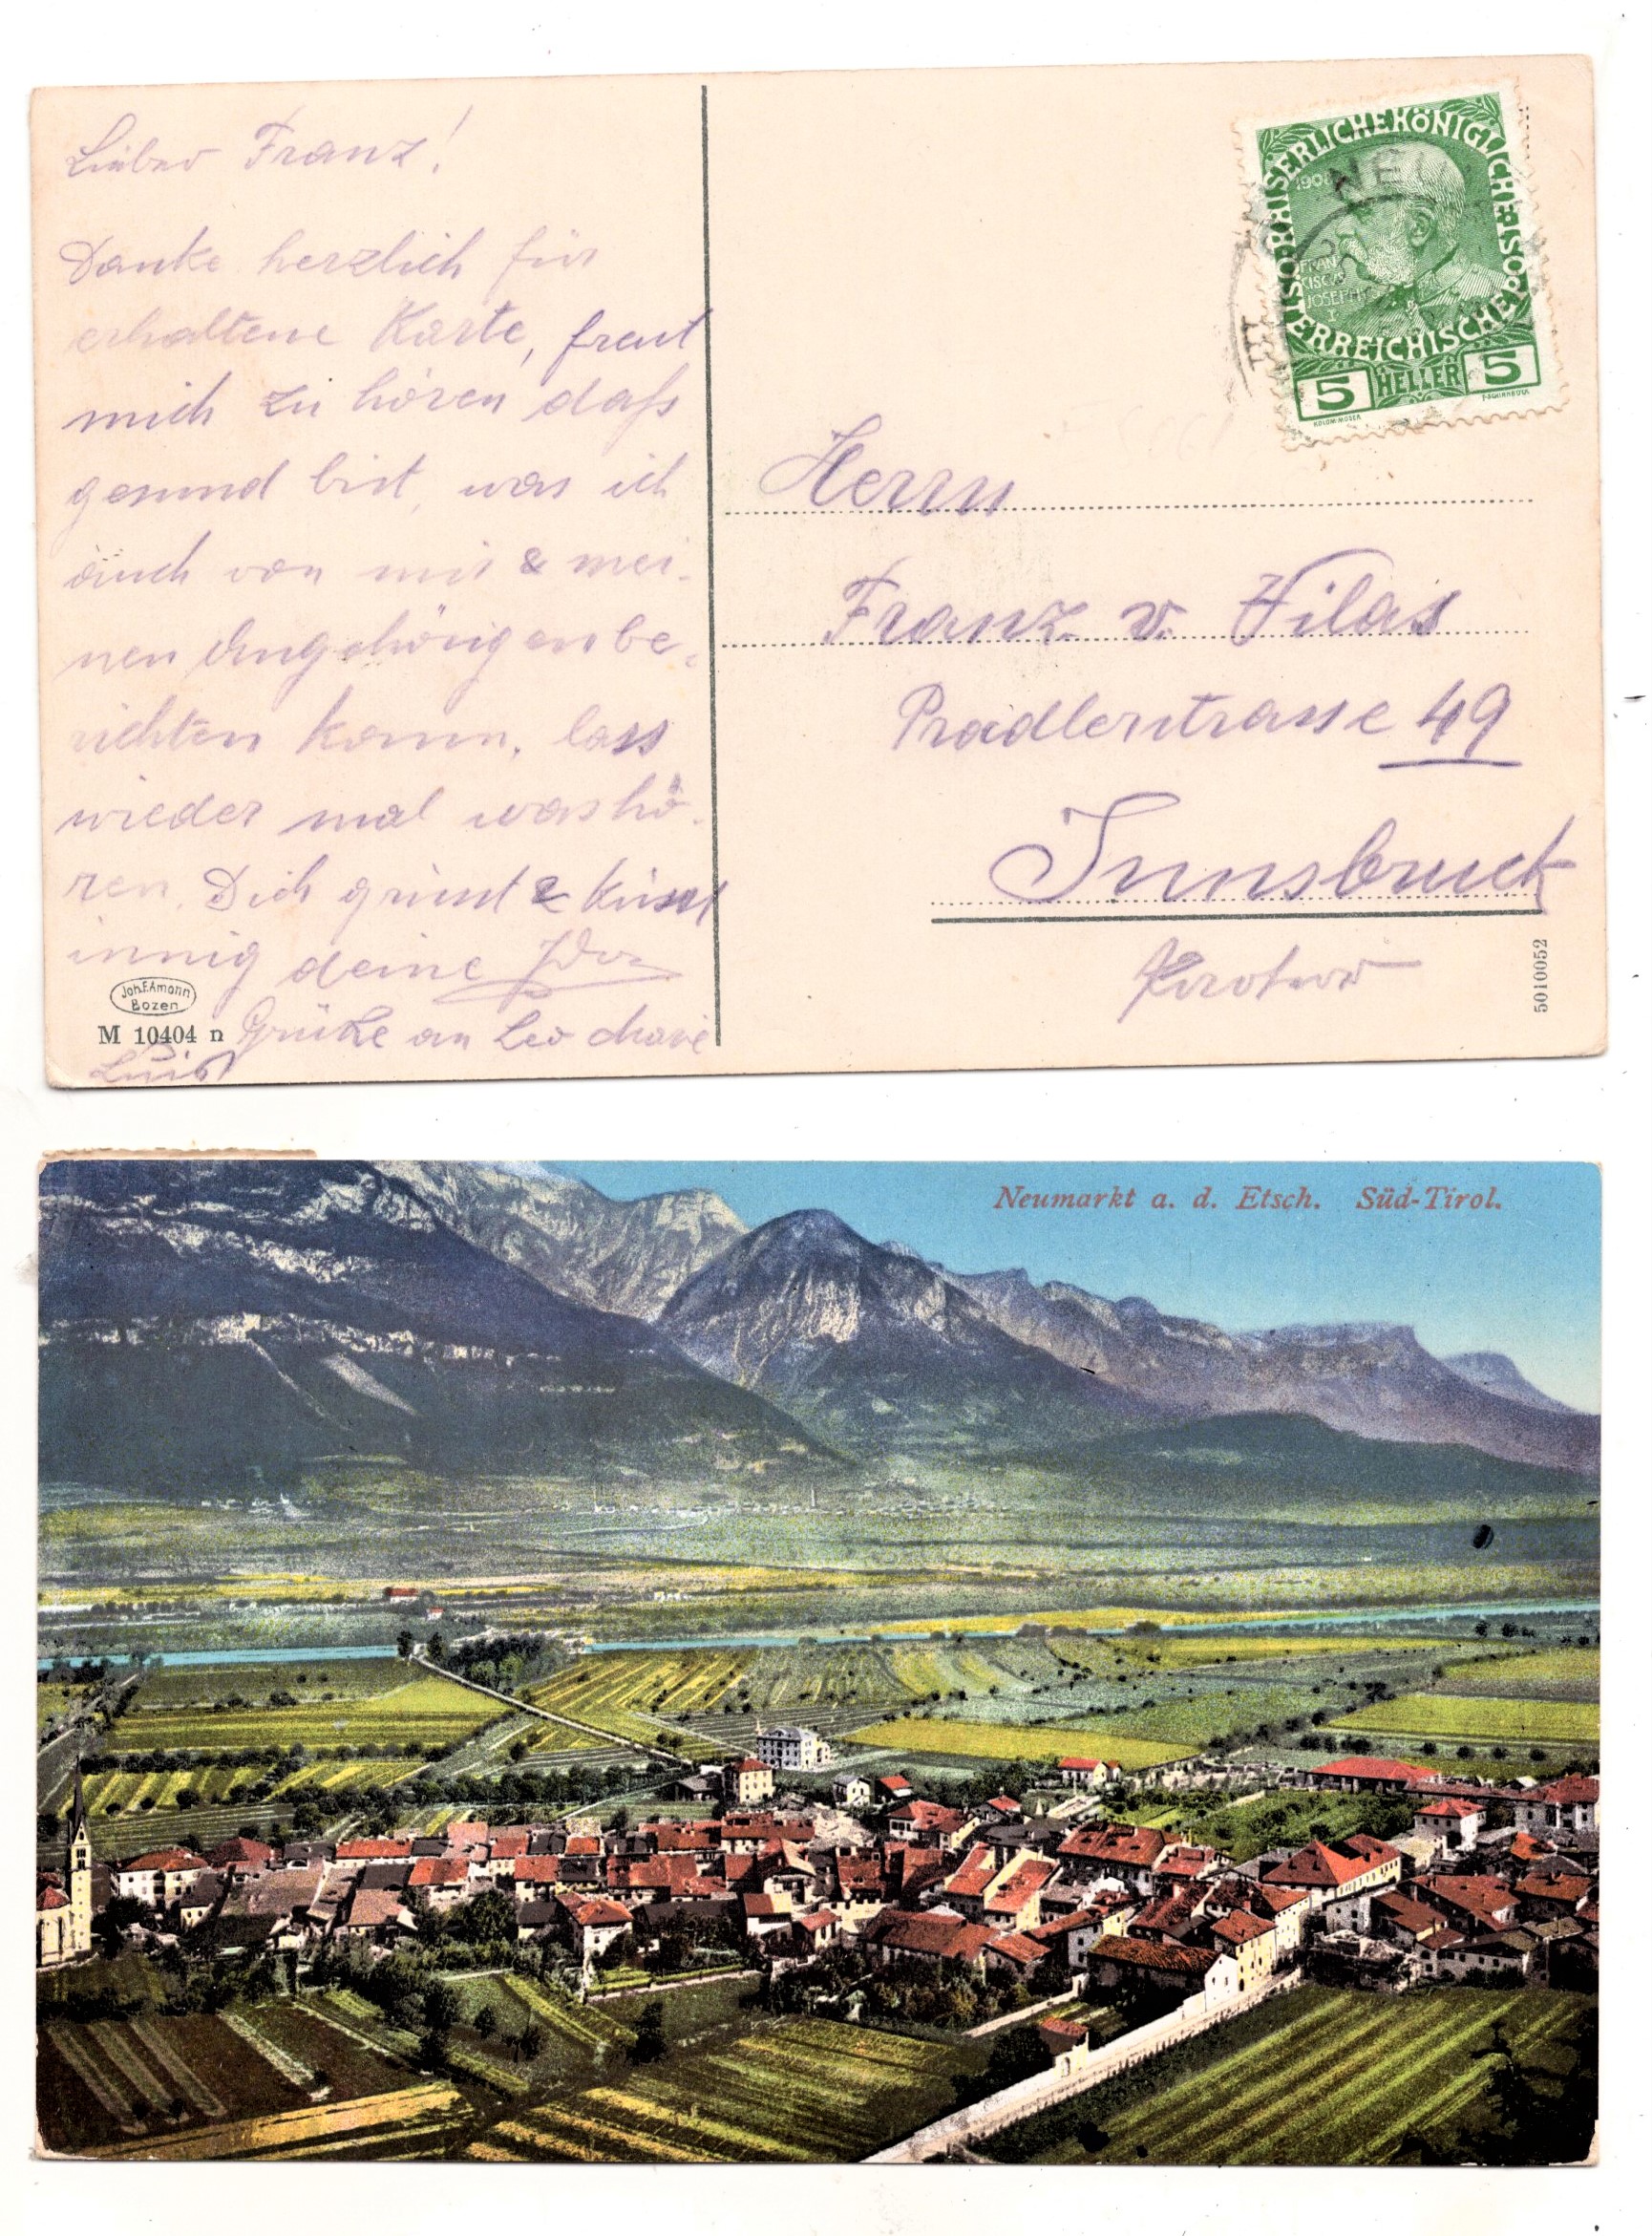 Lieber Franz!
Danke herzlich für
erhaltene Karte, freut
mich zu hören daß
gesund bist, was ich
auch von mir & mei-
nen Angehörigen be-
richten kann. lass
wieder mal was hö-
ren. Dich grüsst & küsst
innig deine
Grüße an Leo
Joh.F.Amonn
Bozen
M 10404 n
KAISERLICHE KÖNIGLICHE
ÖSTERREICHISCHE POST
1908
FRAN
CISCVS
JOSEPH
I
5 HELLER 5
KOLOM.MOSER
F.SCHIRNBÖCK
NEU
III
Herrn
Franz v. Filas
Pradlerstrasse 49
Innsbruck
5010052
Neumarkt a. d. Etsch. Süd-Tirol.